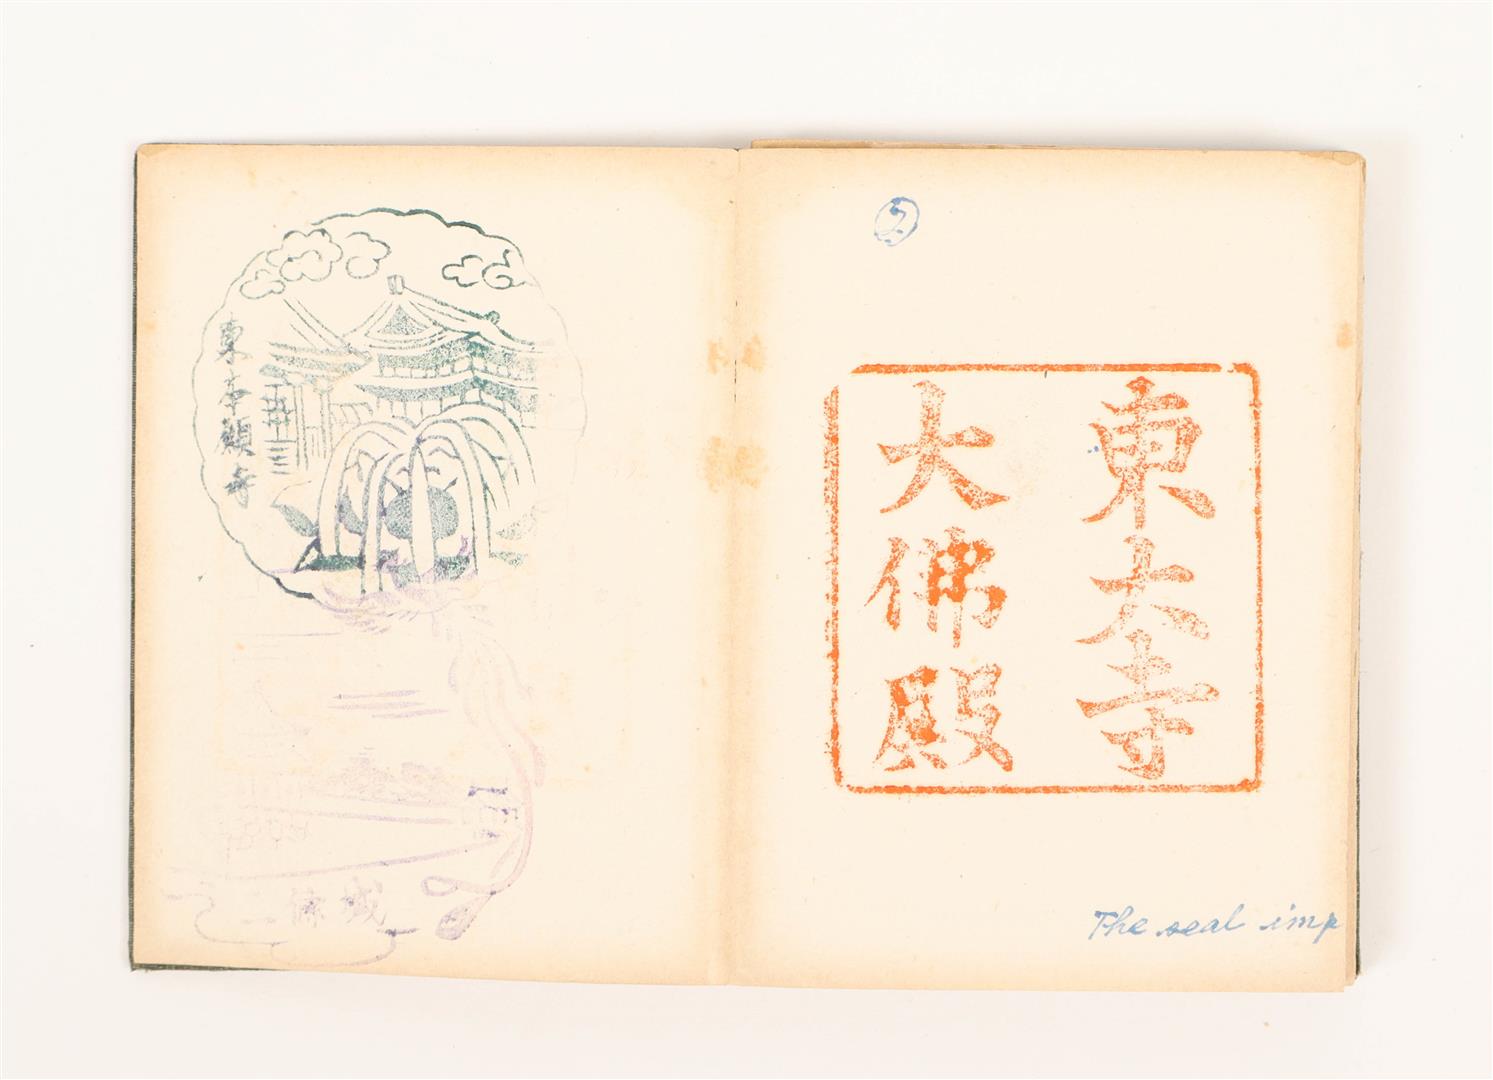 東本願寺
二條城
2
東大寺
大佛殿
The seal imp